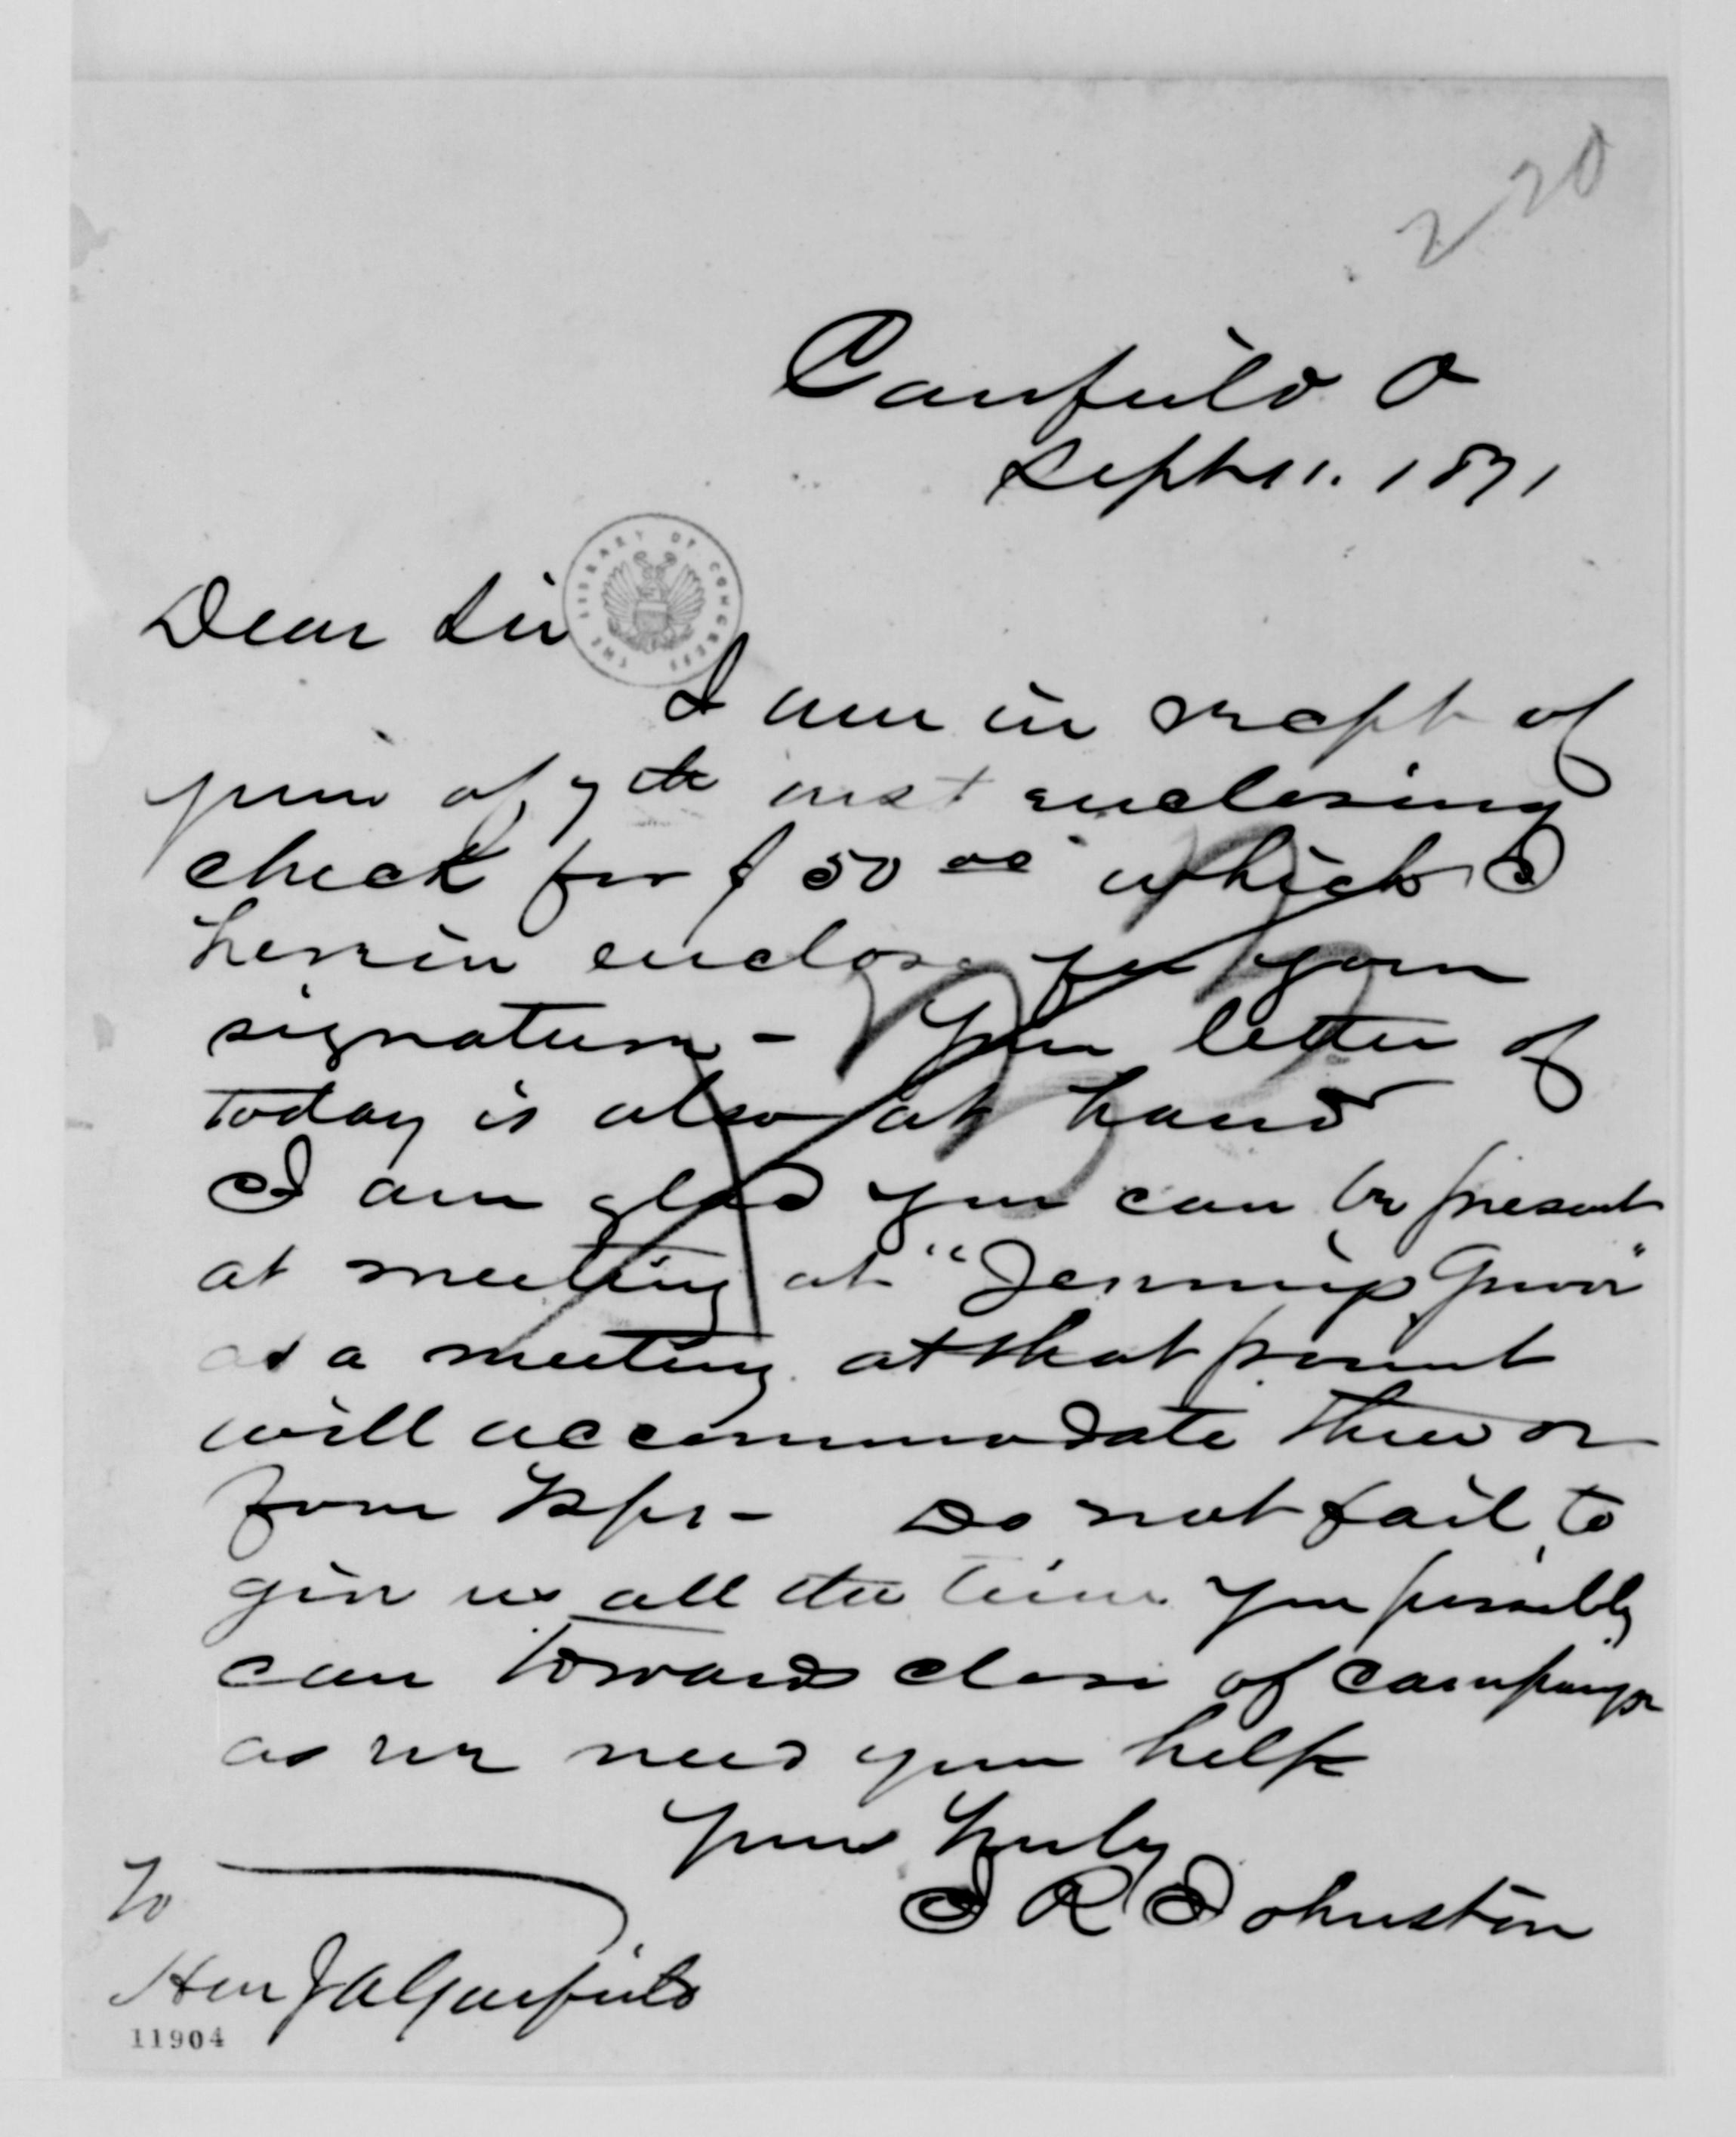 220
Canfield O
Sept 11. 1871
Dear Sir
THE LIBRARY OF CONGRESS
I am in recpt of
yours of 7th inst enclosing
check for $50 00 which I
herein enclose for your
signature - Your letter of
today is also at hand
I am glad you can be present
at meeting at "Jennings Grove"
as a meeting at that point
will accommodate three or
four Tsps - Do not fail to
give us all the time you possibly
can towards close of campaign
as we need your help
Yours truly
J R Johnston
To
Hon J A Garfield
11904